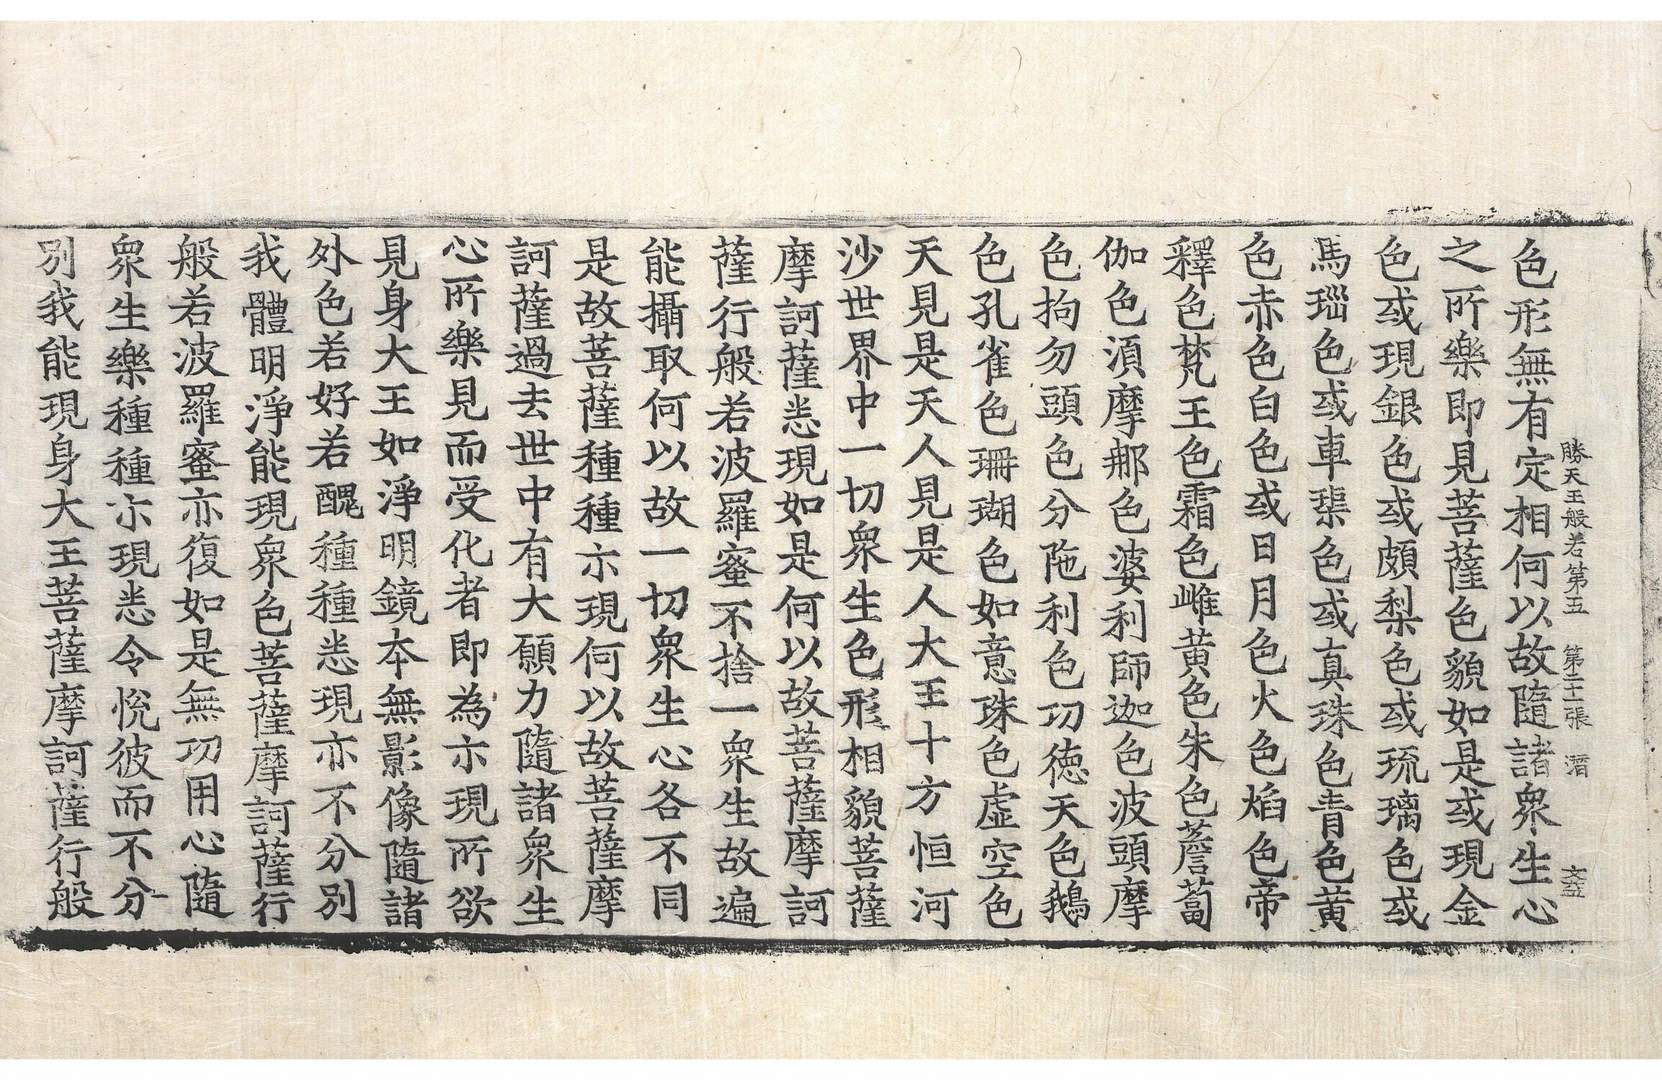 勝天王般若第五
色形無有定相何以故隨諸衆生心
之所樂即見菩薩色貌如是或現金
色或現銀色或頗梨色或琉璃色或
馬瑙色或車璖色或真珠色青色黄
色赤色白色或日月色火色焰色帝
釋色梵王色霜色雌黄色朱色薝蔔
伽色湏摩那色婆利師迦色波頭摩
色拘勿頭色分陁利色功德天色鵝
色孔雀色珊瑚色如意珠色虚空色
天見是天人見是人大王十方恒河
沙世界中一切衆生色形相貌菩薩
摩訶薩悉現如是何以故菩薩摩訶
薩行般若波羅蜜不捨一衆生故遍
能攝取何以故一切衆生心各不同
是故菩薩種種示現何以故菩薩摩
訶薩過去世中有大願力隨諸衆生
心所樂見而受化者即為示現所欲
見身大王如淨明鏡本無影像隨諸
外色若好若醜種種悉現亦不分別
我體明淨能現衆色菩薩摩訶薩行
般若波羅蜜亦復如是無功用心隨
衆生樂種種示現悉令悅彼而不分
別我能現身大王菩薩摩訶薩行般